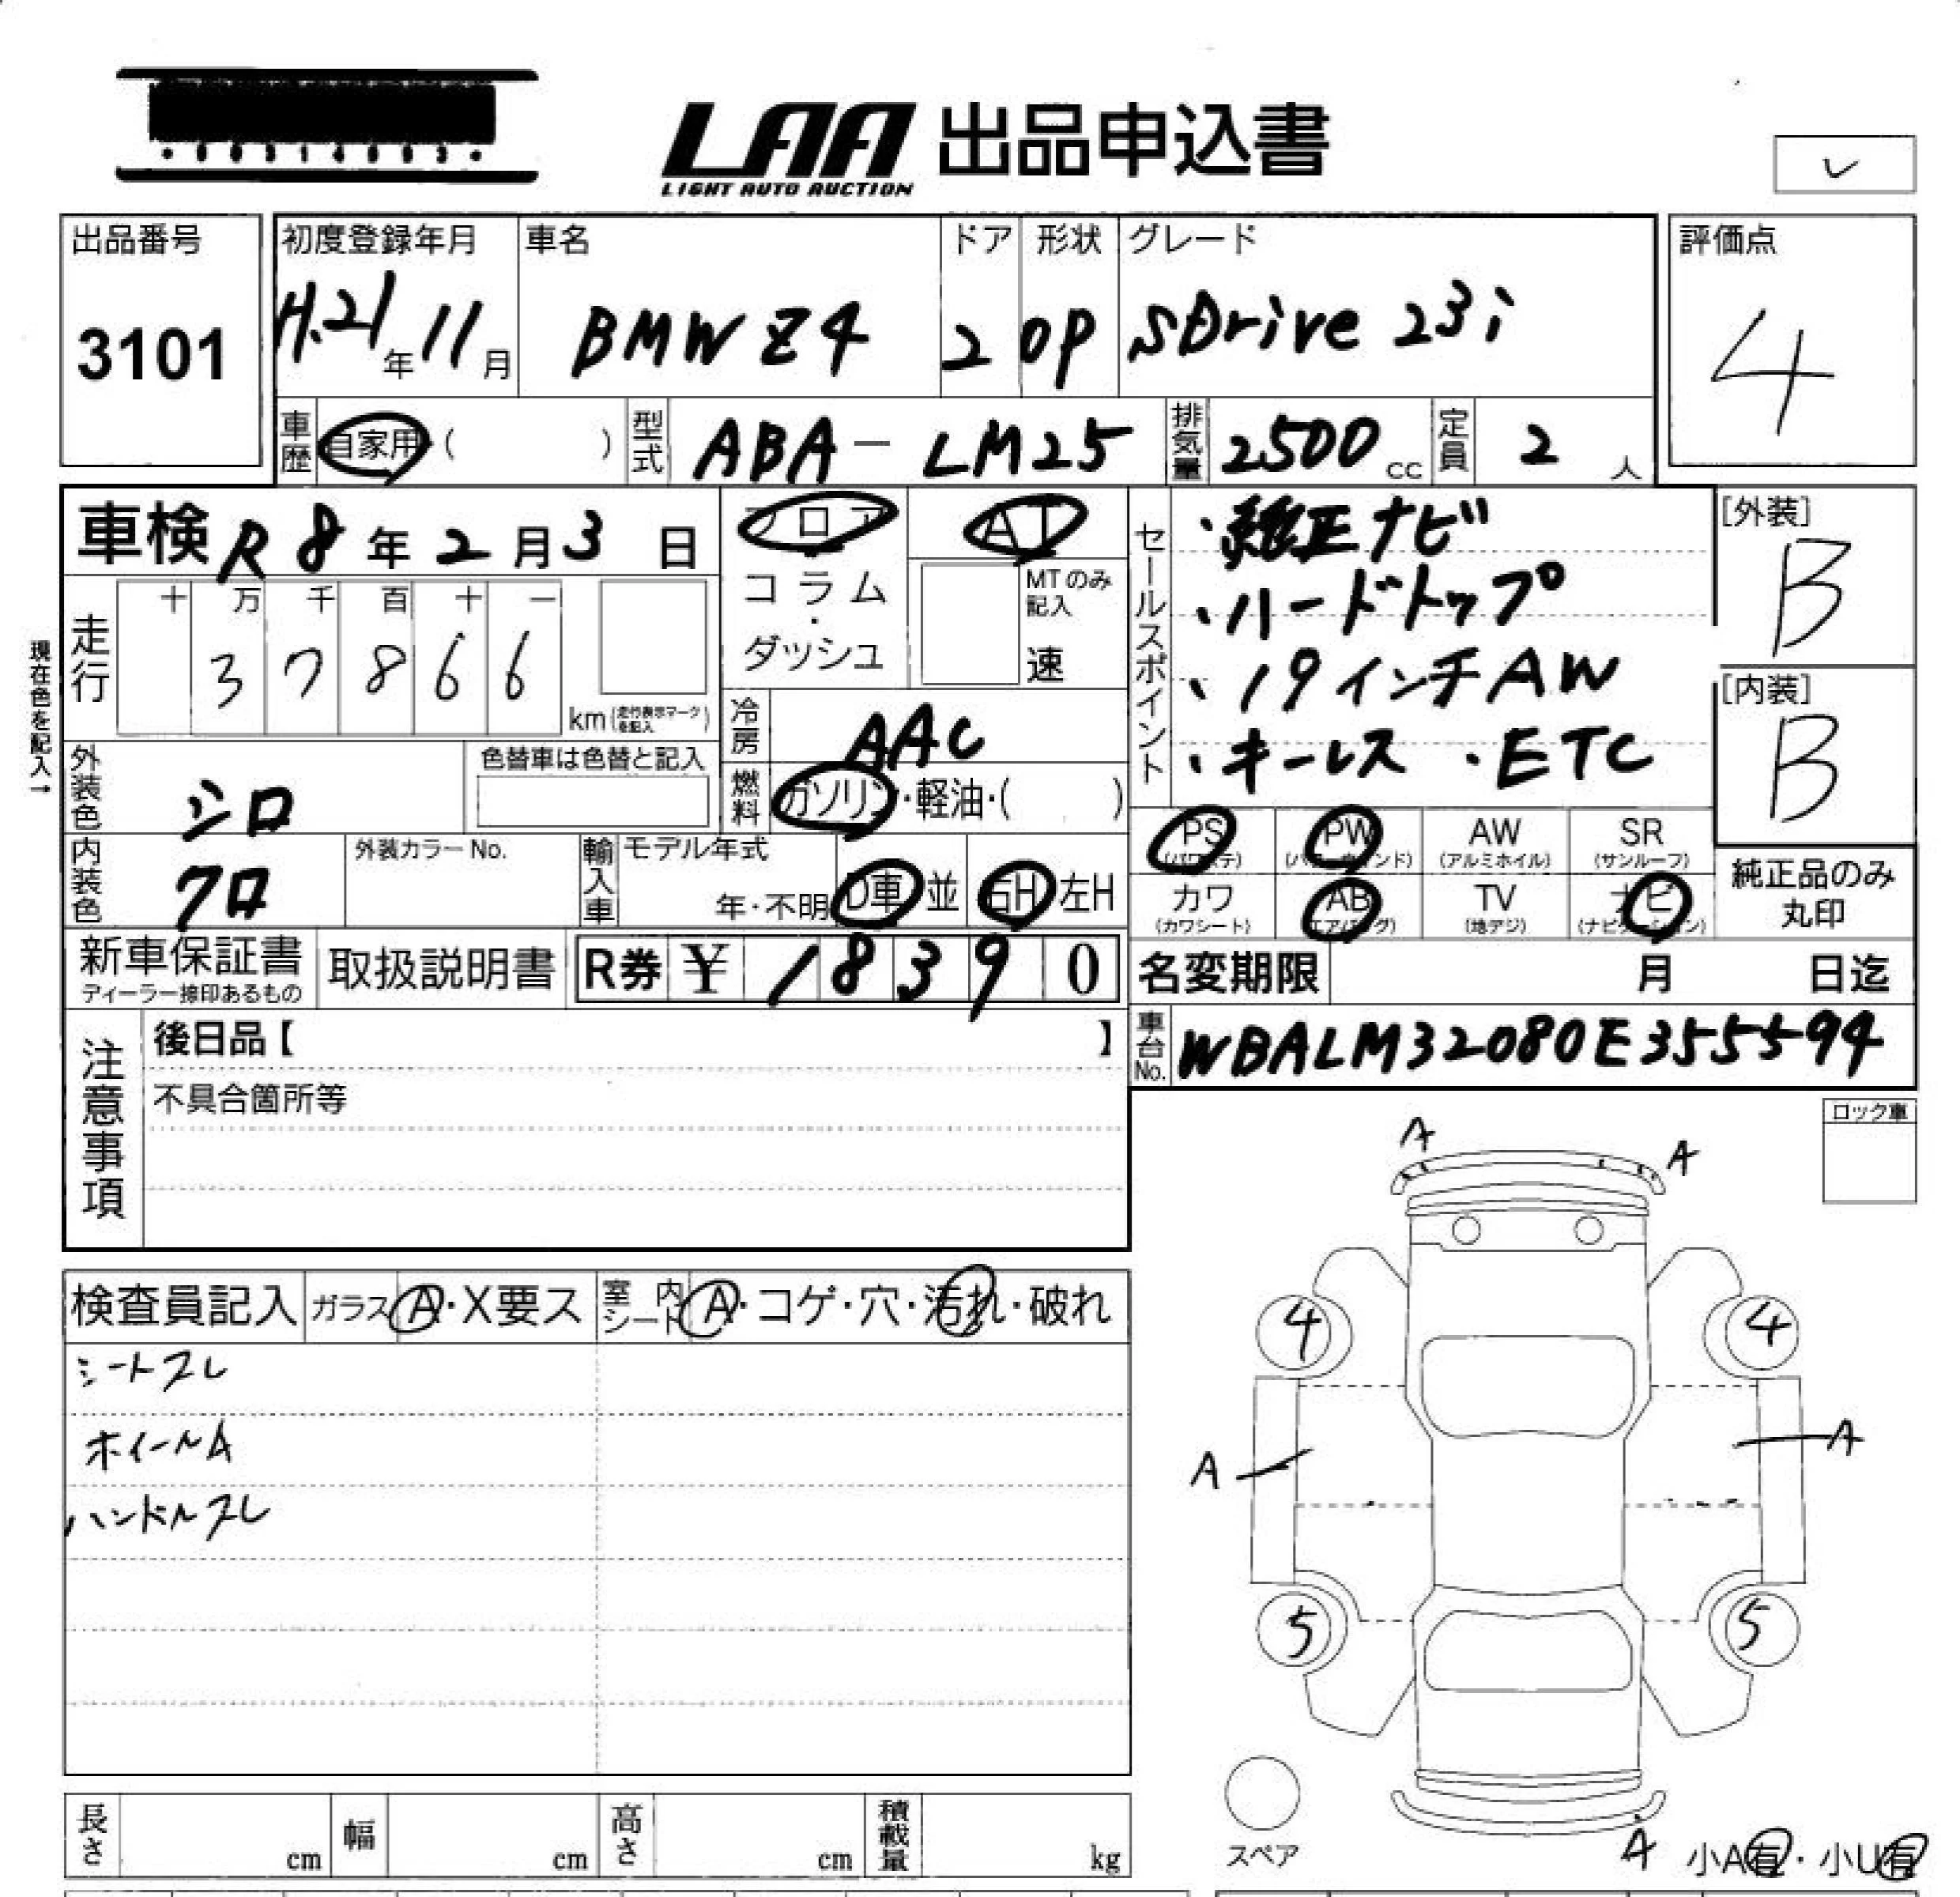 LAA 出品申込書
LIGHT AUTO AUCTION
レ
出品番号
3101
初度登録年月
H.21年11月
車名
BMW Z4
ドア
2
形状
OP
グレード
SDrive 23i
評価点
4
車歴 自家用・( )
型式 ABA-LM25
排気量 2500cc
定員 2人
車検 R8年2月3日
フロア
・
コラム
・
ダッシュ
AT
MTのみ記入
速
セールスポイント
・純正ナビ
・ハードトップ
・19インチAW
・キーレス ・ETC
[外装]
B
[内装]
B
現在色を記入→
走行
十 万 千 百 十 一
3 7 8 6 6
km(走行表示マークを記入)
冷房 AAC
燃料 ガソリン・軽油・( )
外装色 シロ
色替車は色替と記入
内装色 クロ
外装カラーNo.
輸入車
モデル年式
年・不明
D車 並
右H 左H
PS
(パワステ)
PW
(パワーウィンド)
AW
(アルミホイル)
SR
(サンルーフ)
カワ
(カワシート)
AB
(エアバッグ)
TV
(地デジ)
ナビ
(ナビゲーション)
純正品のみ
丸印
新車保証書
ディーラー捺印あるもの
取扱説明書
R券 ¥ 18390
名変期限 月 日迄
車台No. WBALM32080E355594
注意事項
後日品【 】
不具合箇所等
ロック車
検査員記入
ガラス A・X要ス
室内シート A・コゲ・穴・汚れ・破れ
シートスレ
ホイールA
ハンドルスレ
A
A
4
4
A
A
5
5
スペア
A
小A有・小U有
長さ cm
幅 cm
高さ cm
積載量 kg